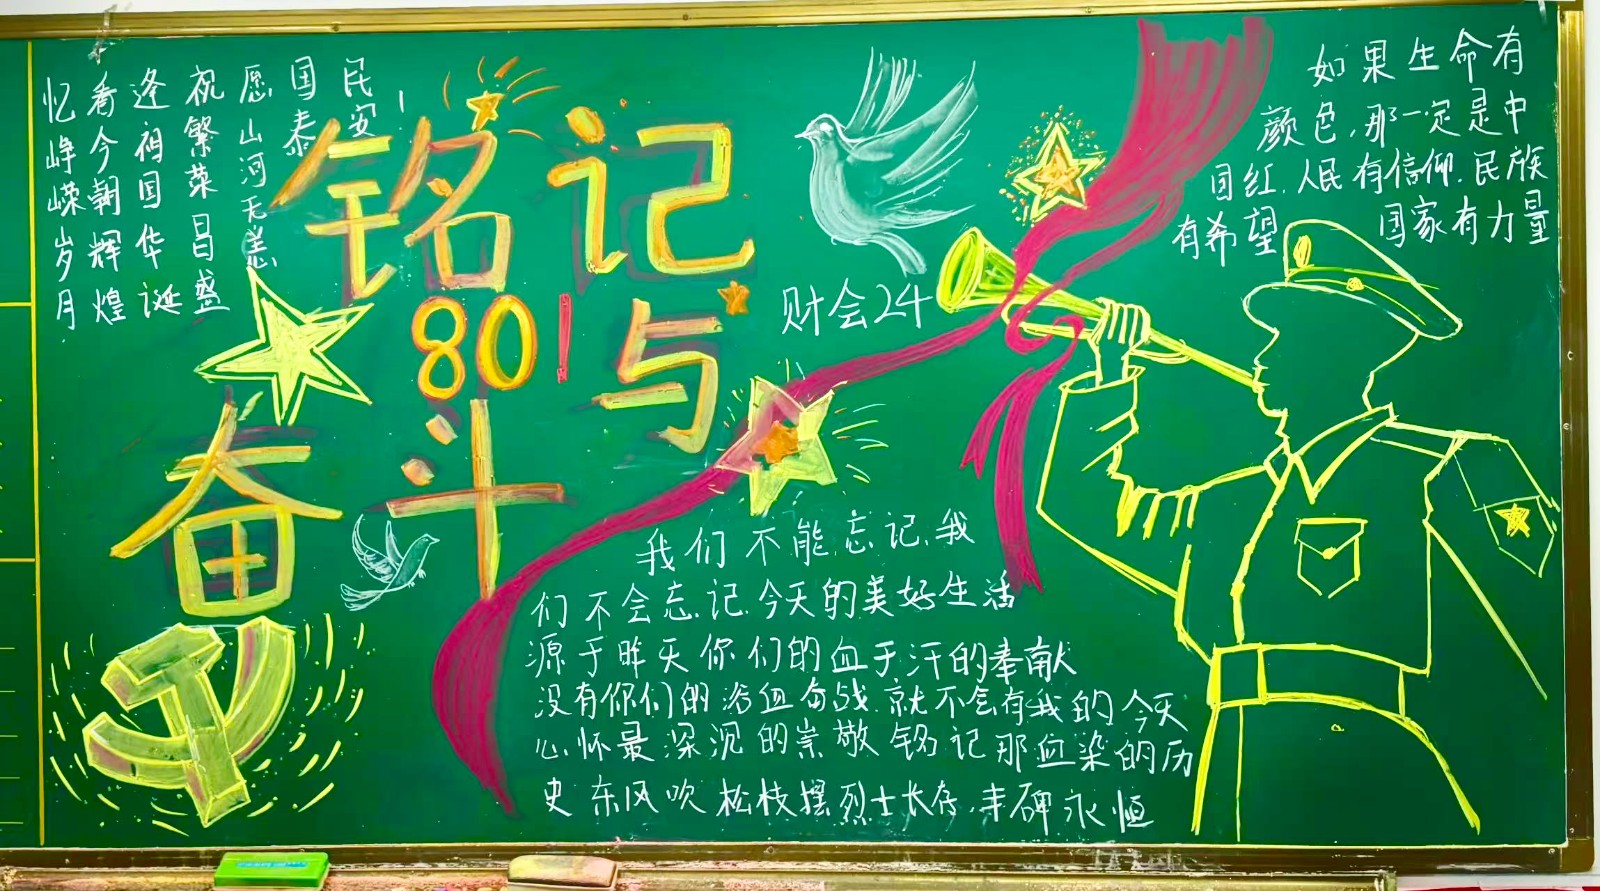 忆峥嵘岁月
看今朝辉煌
逢祖国华诞
祝繁荣昌盛
愿山河无恙
国泰
民安!
铭记
80!
与
奋斗
财会24
如果生命有
颜色,那一定是中
国红.人民有信仰.民族
有希望 国家有力量
我们不能忘记,我
们不会忘记.今天的美好生活
源于昨天你们的血于汗的奉献
没有你们的浴血奋战.就不会有我的今天
心怀最深沉的崇敬 铭记那血染的历
史 东风吹 松枝摆烈士长存,丰碑永恒